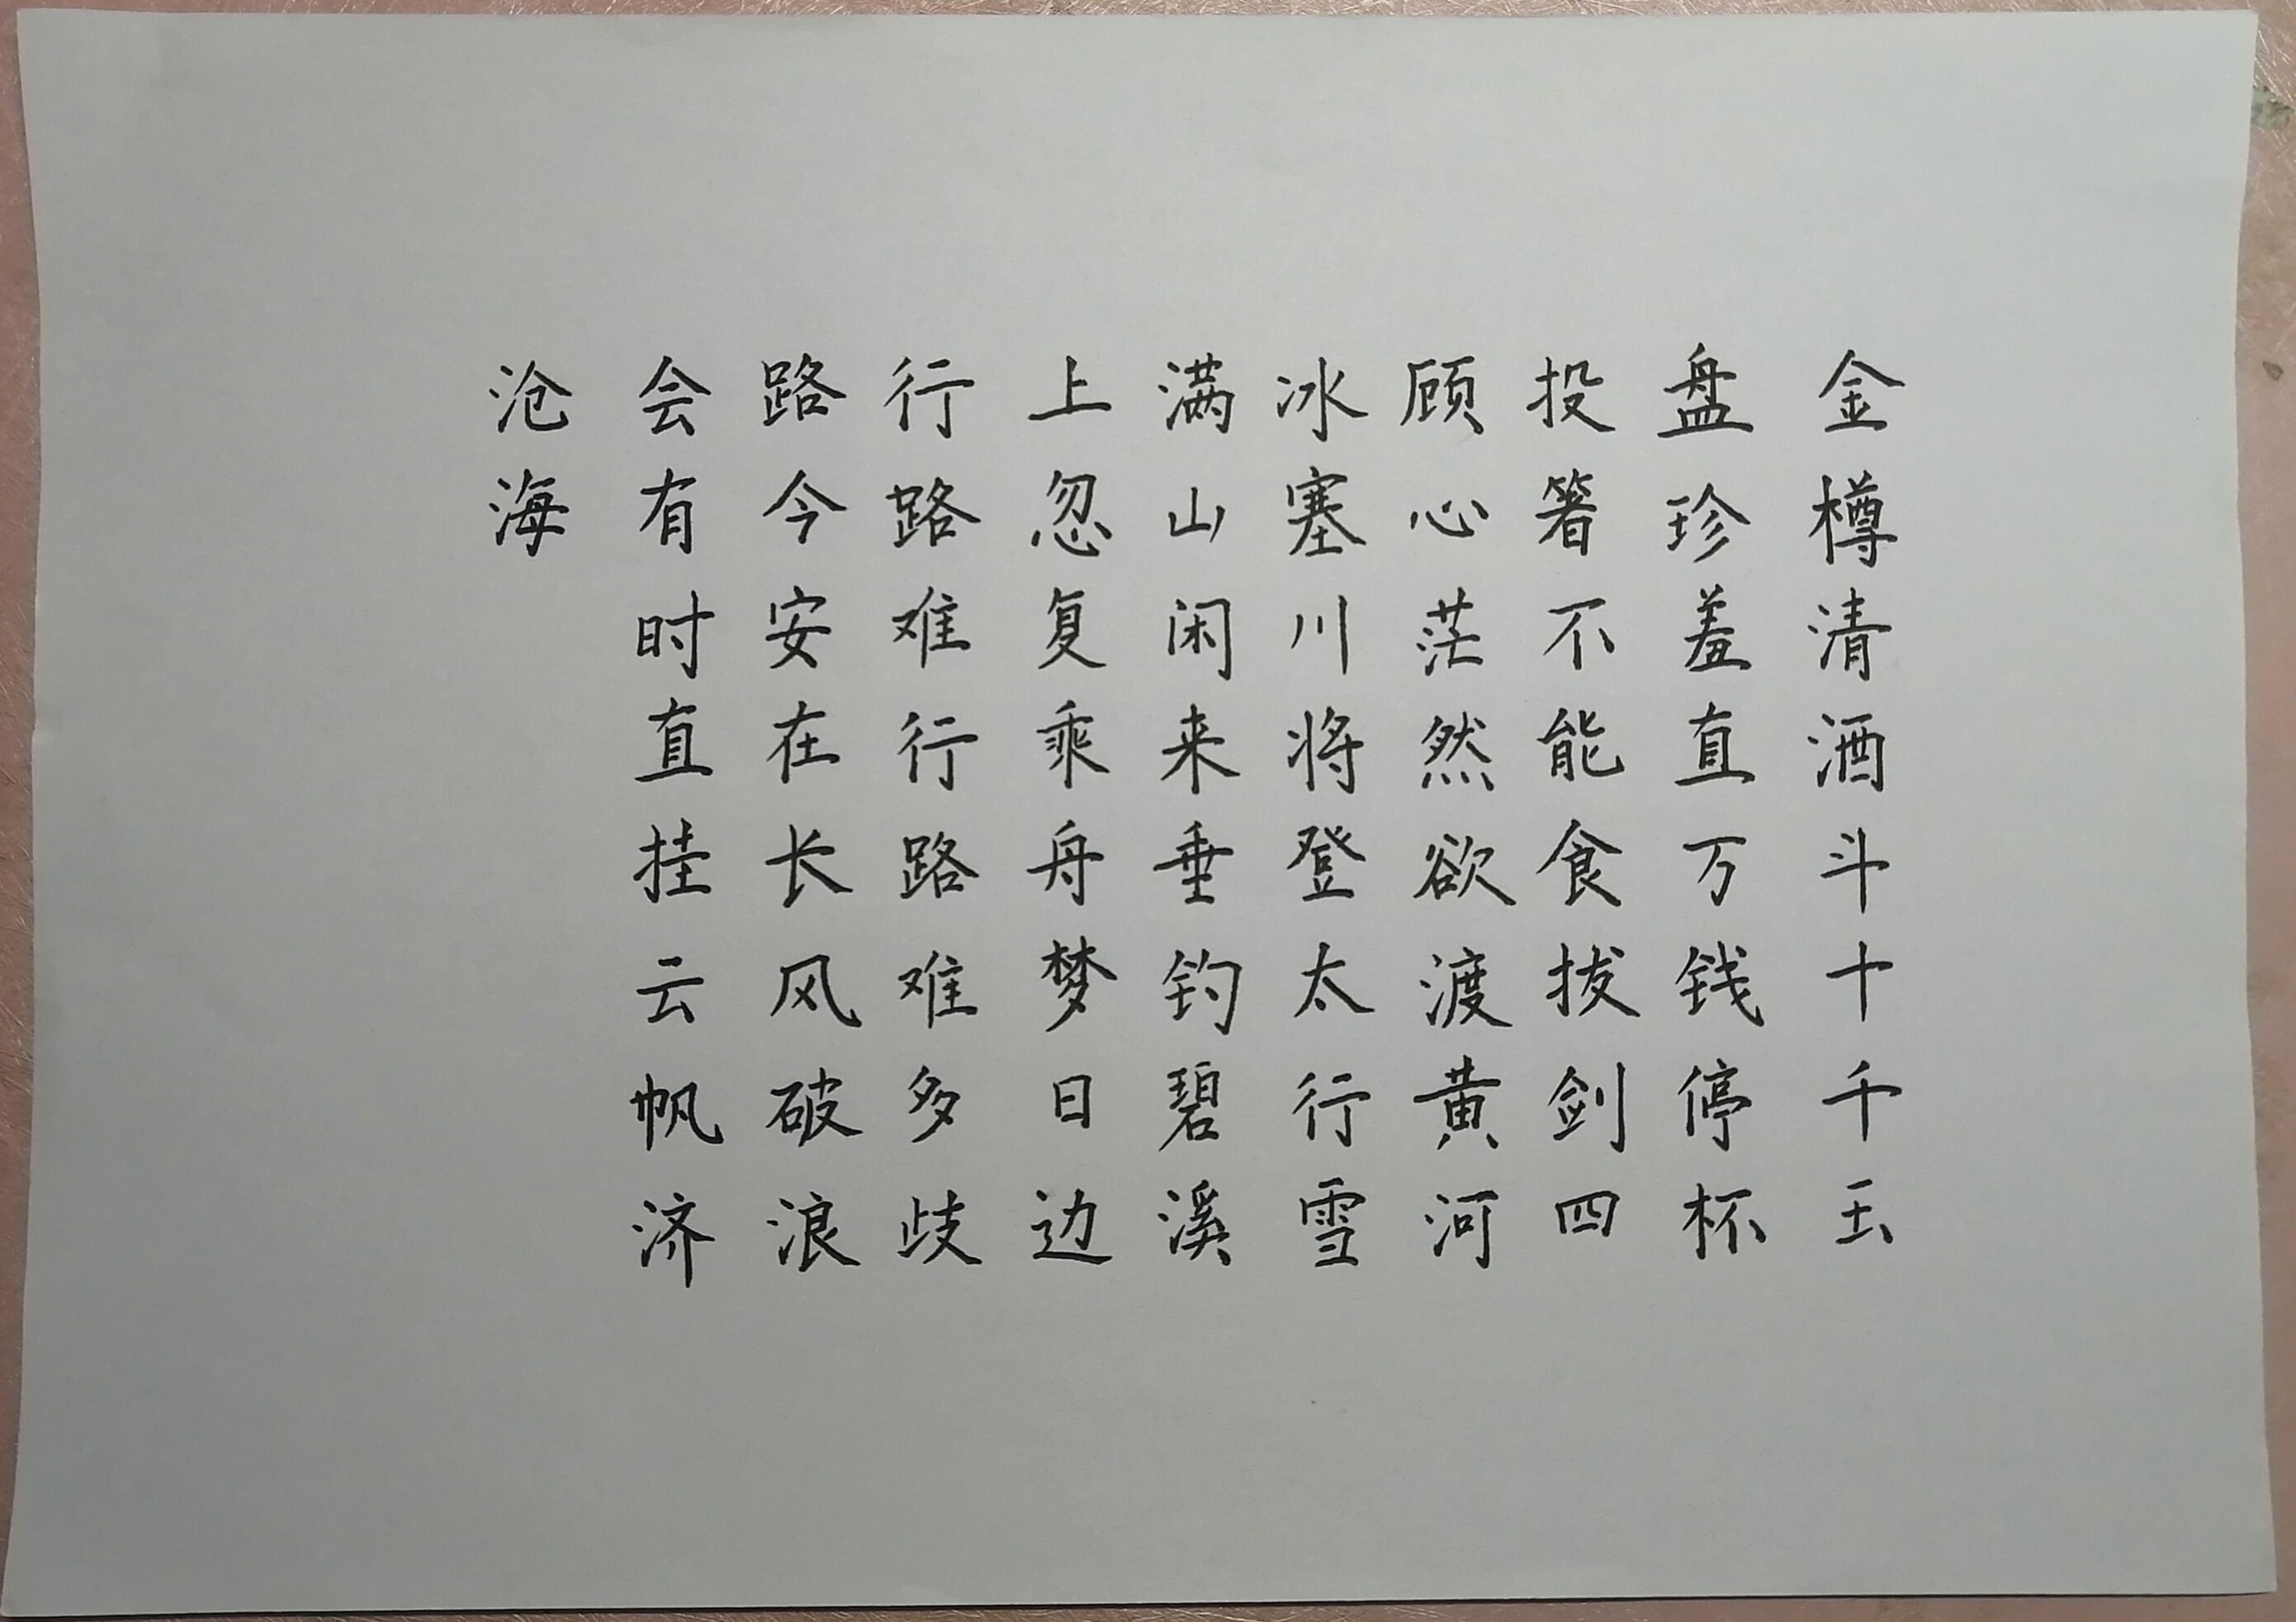 金樽清酒斗十千玉
盘珍羞直万钱停杯
投箸不能食拔剑四
顾心茫然欲渡黄河
冰塞川将登太行雪
满山闲来垂钓碧溪
上忽复乘舟梦日边
行路难行路难多歧
路今安在长风破浪
会有时直挂云帆济
沧海